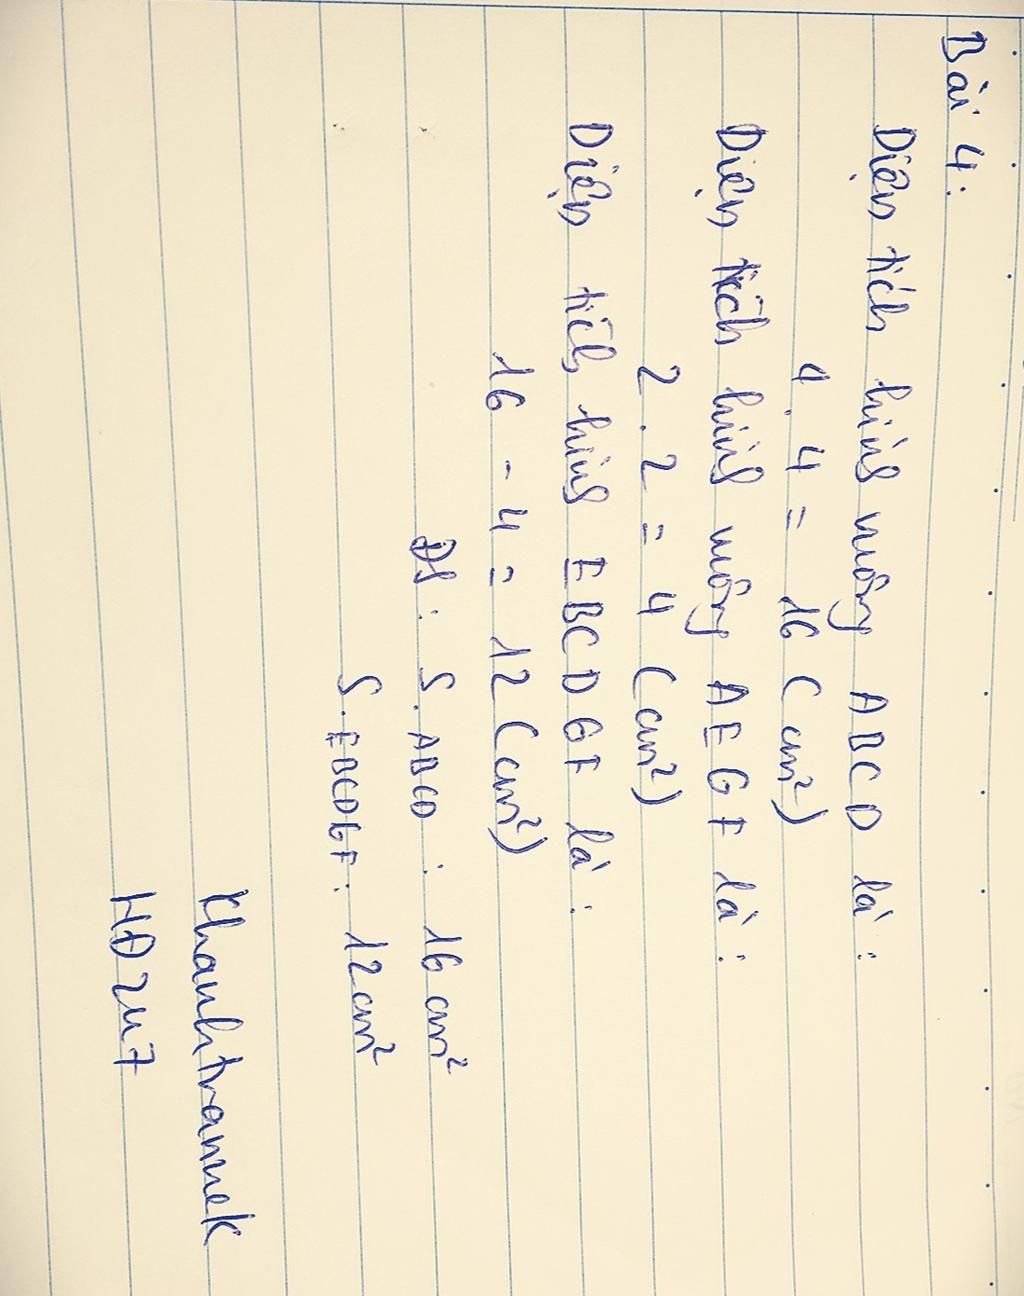 Bài 4:
Diện tích hình vuông ABCD là:
4 . 4 = 16 (cm²)
Diện tích hình vuông AEGF là:
2 . 2 = 4 (cm²)
Diện tích hình EBCDGF là:
16 - 4 = 12 (cm²)
ĐS: S.ABCD: 16 cm²
S.EBCDGF: 12cm²
Khanhtramek
HĐ247